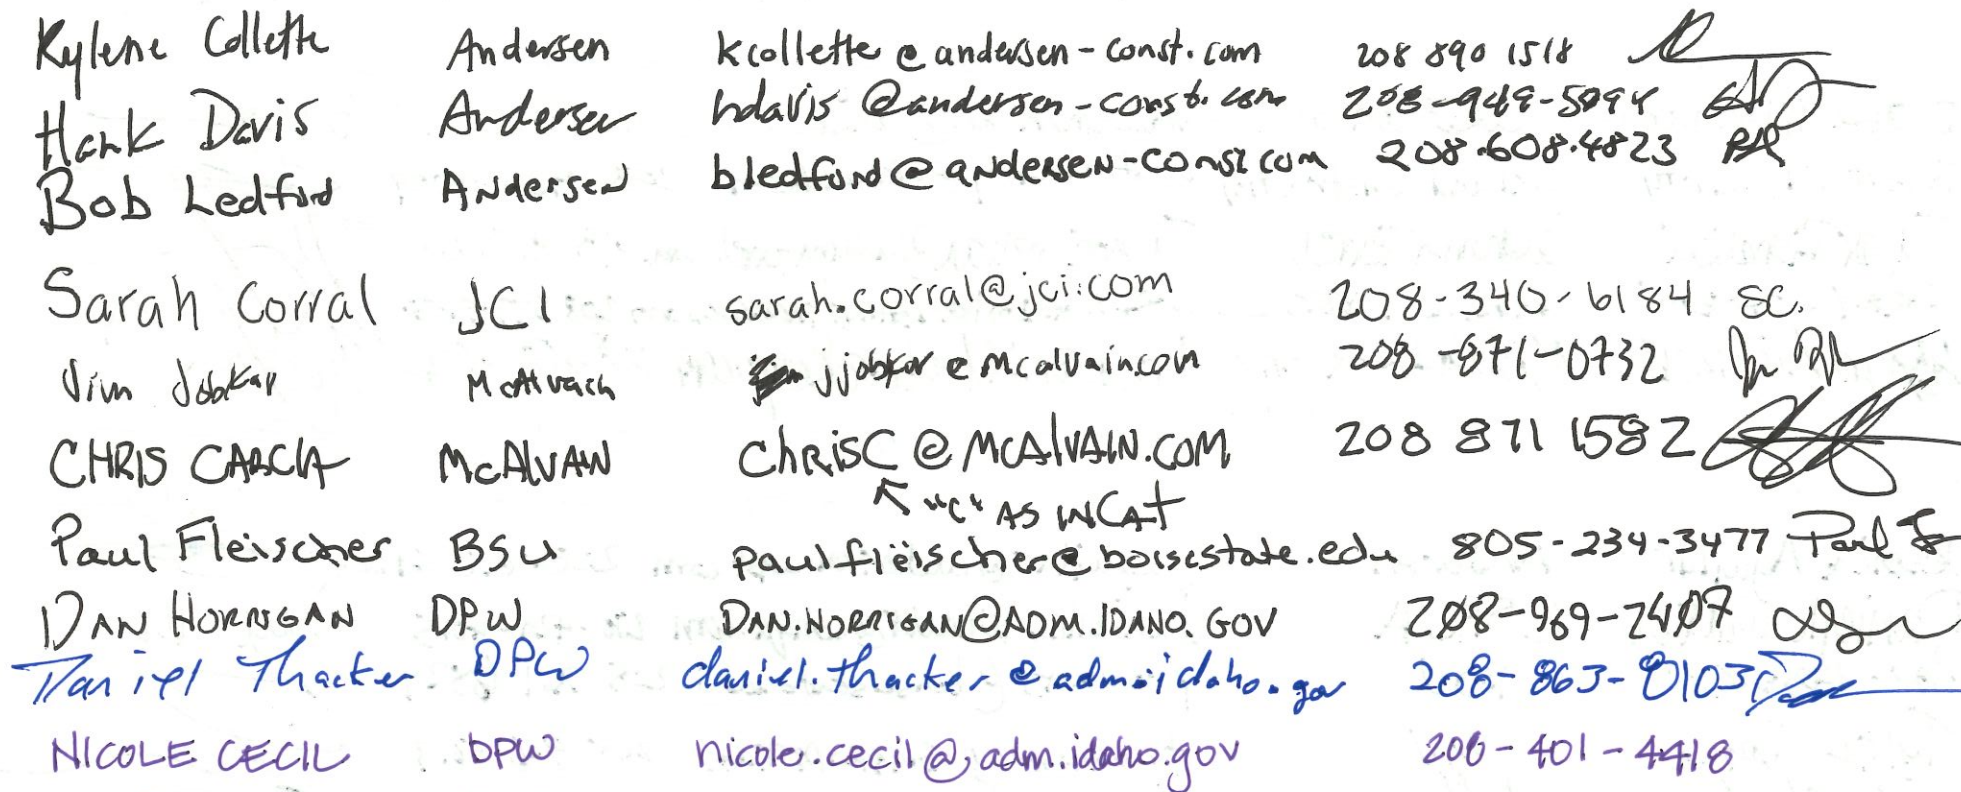 Kylene Collette Andersen kcollette@andersen-const.com 208 890 1518
Hank Davis Andersen hdavis@andersen-const.com
Bob Ledford Andersen bledford@andersen-const.com 208.608.4823
Sarah Corral JCI sarah.corral@jci.com 208-340-6184 SC.
Jim Jobkar McAlvain jjobkar@mcalvain.com 208-871-0732
CHRIS CARCIA McALVAIN ChrisC@McAlVAIN.COM 208 871 1582
"C" AS IN CAT
Paul Fleischer BSU paulfleischer@boisestate.edu 805-234-3477
DAN HORRIGAN DPW DAN.HORRIGAN@ADM.IDAHO.GOV 208-969-2407
Daniel Thacker DPW daniel.thacker@adm.idaho.gov 208-863-8103
NICOLE CECIL DPW nicole.cecil@adm.idaho.gov 208-401-4418